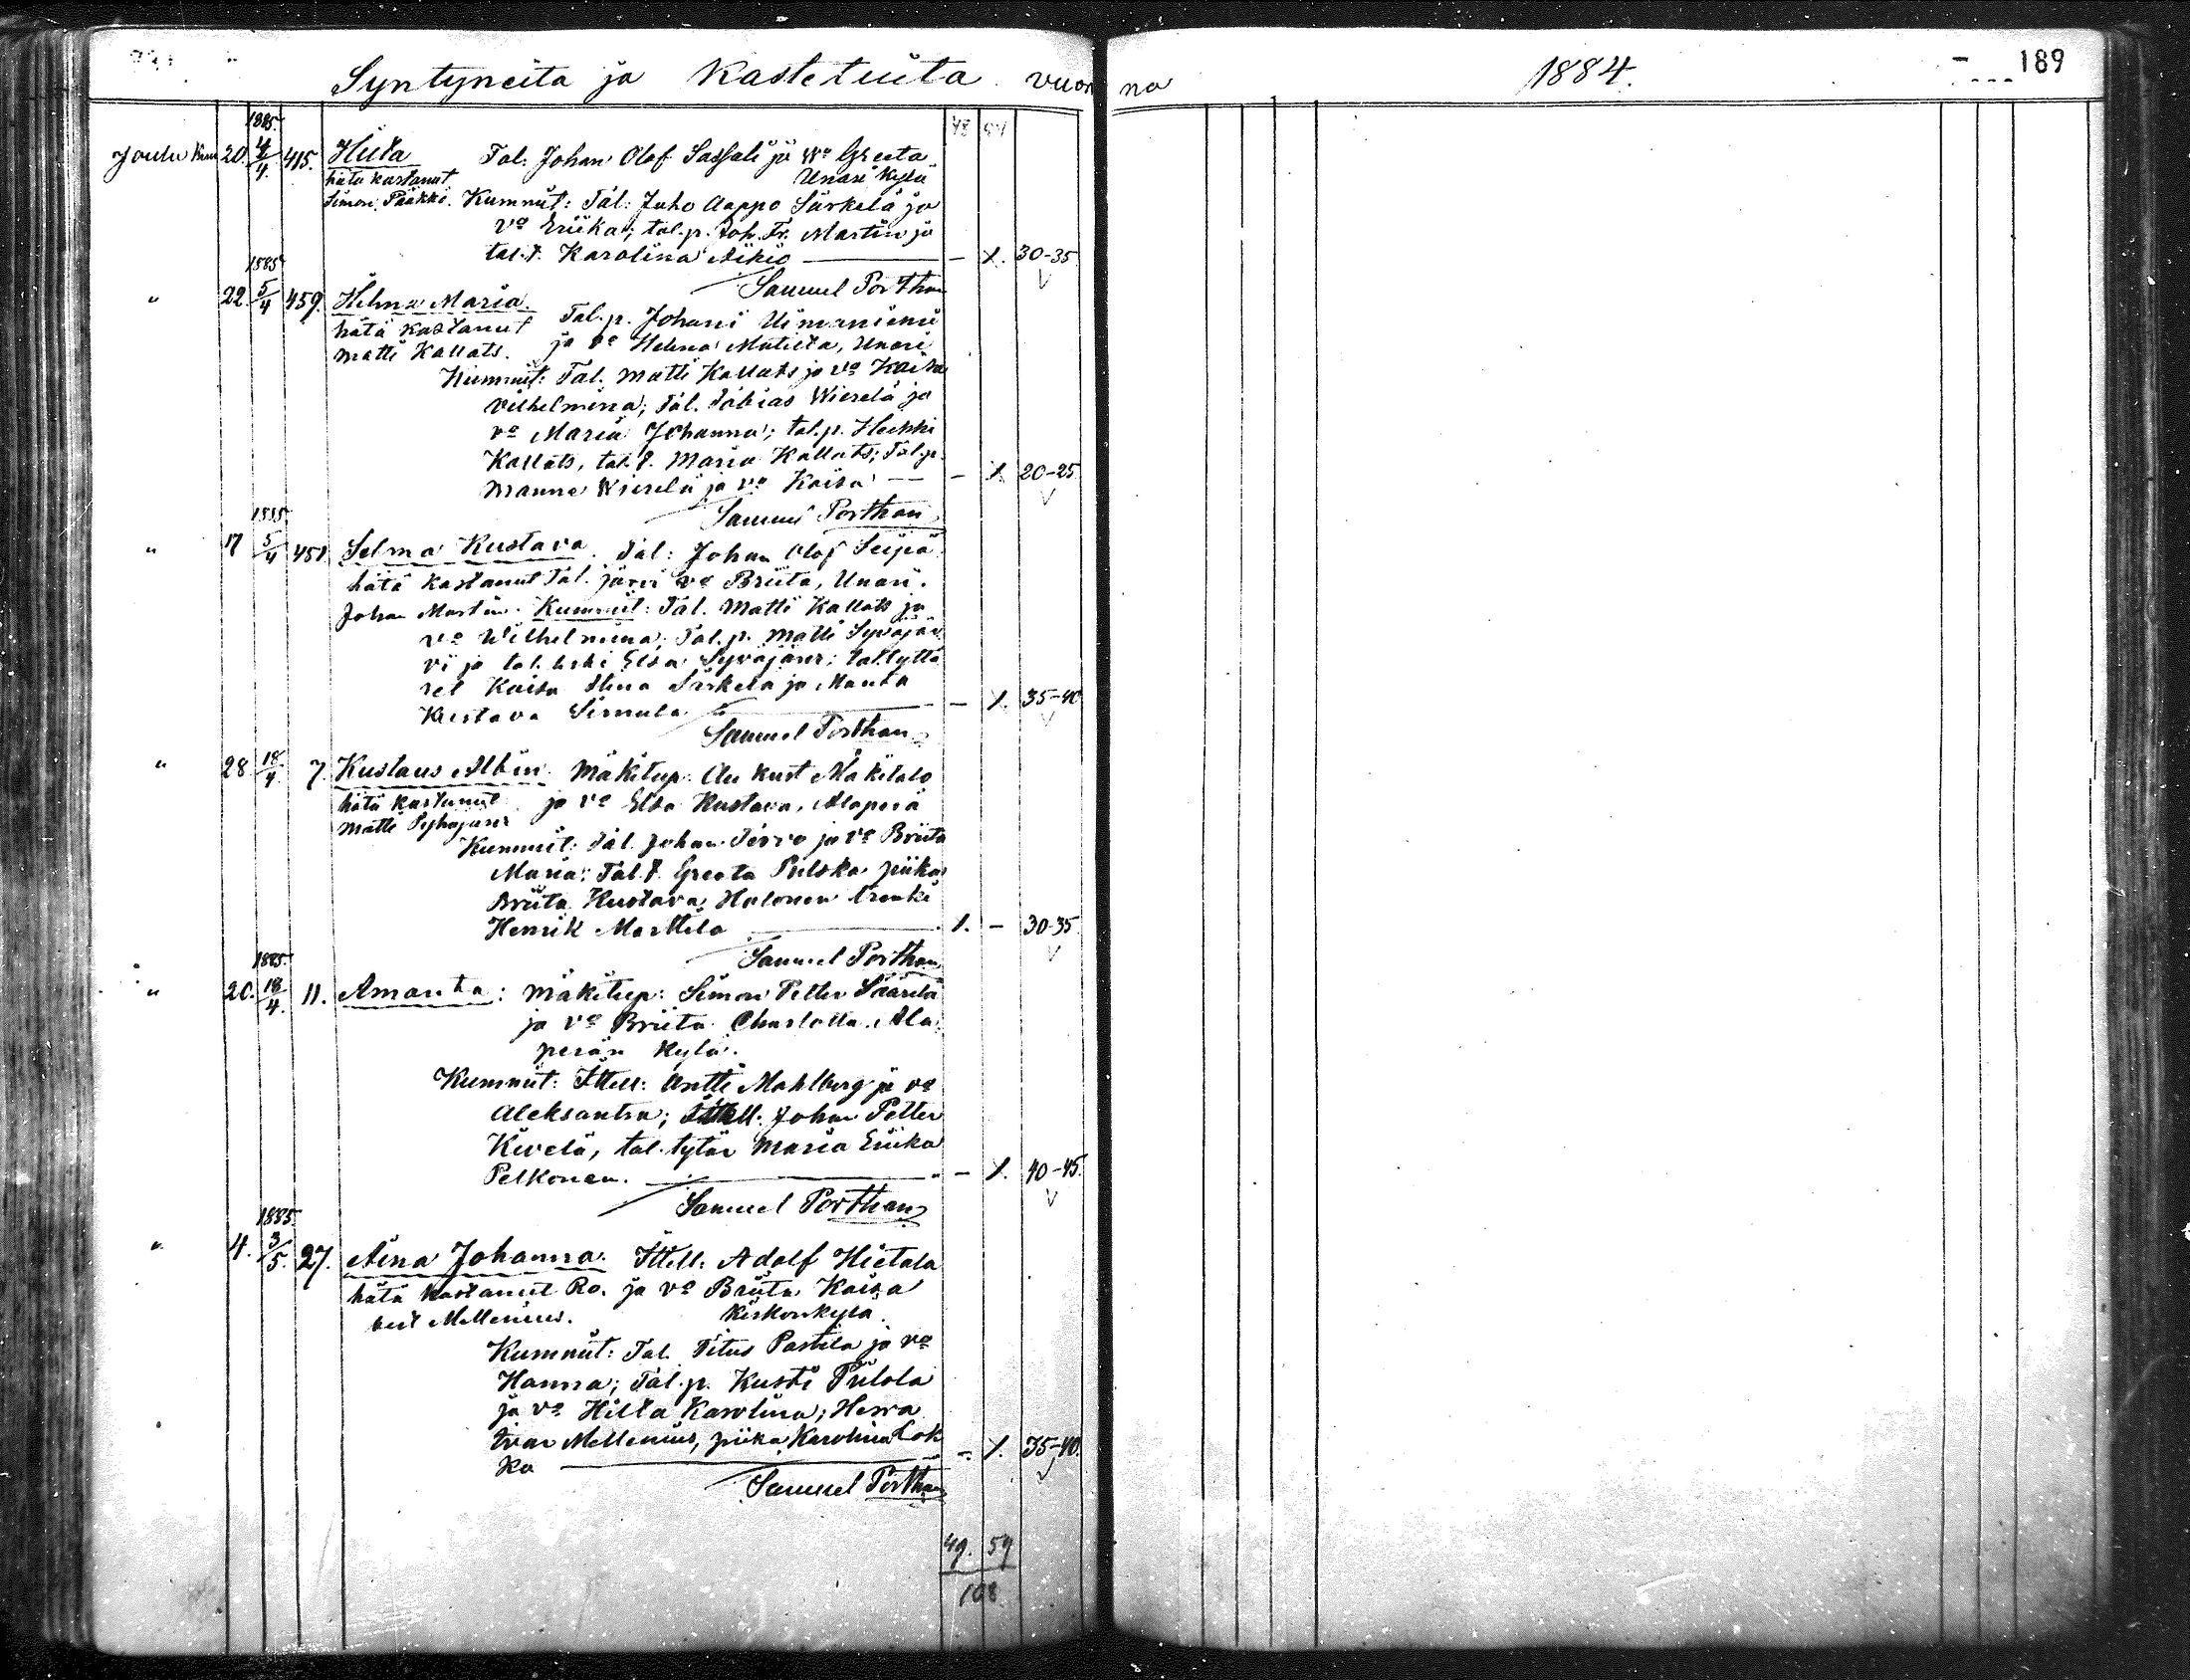 Syntyneitä ja Kastetuita vuonna 1884.
189
1885.
Joulu Kuu 20. 4/4. 415. Hilta Tal. Johan Olof Sassali ja Wo Greeta
hätä kastanut Unari Kylä
Simon Pääkkö. Kummit: Tal: Juho Aappo Särkelä ja
vo Eriika; tal.p. Joh. Fr. Martin ja
tal.t. Karolina Aikio — — 1. 30-35
Samuel Porthan
1885
" 22. 5/4 459. Helma Maria. Tal.p. Johani Uimaniemi
hätä kastanut ja vo Helena Matilta, Unari
Matti Kallats.
Kummit: Tal. Matti Kallats ja vo Kaisa
Vilhelmina; Tal. Tobias Wierelä ja
vo Maria Johanna; tal.p. Heikki
Kallats, tal.t. Maria Kallats; Tal.p.
Manne Wierelä ja vo Kaisa — — 1. 20-25
Samuel Porthan
1885
" 17 5/4 451. Selma Kustava. Tal: Johan Olof Seipä
hätä kastanut Tal. järvi vo Briita, Unari.
Johan Martin. Kummit: Tal. Matti Kallats ja
vo Wilhelmina; Tal.p. Matti Syväjär
vi ja tal. leski Elsa Syväjärvi; tal.tyttä
ret Kaisa Stina Särkelä ja Manta
Kustava Sirnula — — 1. 35-40
Samuel Porthan
" 28. 18/4. 7. Kustaus Albin. Mäkitup: Aukust Mäkitalo
hätä kastanut ja vo Elsa Kustava, Alaperä
Matti Pyhäjärvi
Kummit: Tal. Johan Tervo ja vo Briita
Maria; Tal.t. Greeta Pulska piika
Briita Kustava Halonen Renki
Henrik Marttila — 1. — 30-35
Samuel Porthan
1885.
" 20. 18/4. 11. Amanta: Mäkitup: Simon Petter Säärelä
ja vo Briita Charlotta. Ala
perän Kylä.
Kummit: Ittell: Antti Mahlberg ja vo
Aleksantra; Ittell. Johan Petter
Kivelä, tal. tytär Maria Eriika
Pelkonen. — — 1. 40-45.
Samuel Porthan
1885
" 4. 3/5. 27. Aina Johanna. Ittell. Adolf Hietala
hätä kastanut Ro. ja vo Briita Kaisa
bert Mellenius. Kirkonkylä.
Kummit: Tal. Titus Pastila ja vo
Hanna; Tal.p. Kusti Pulola
ja vo Hilta Karolina; Herra
Ivar Mellenius, piika Karolina Lok
ka — — 1. 35-40.
Samuel Porthan
49. 59
108